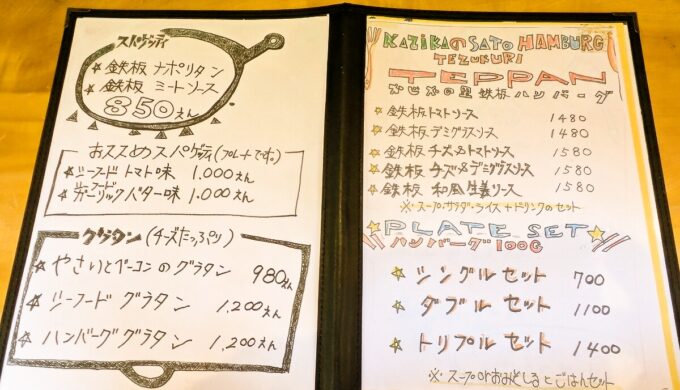 スパゲッティ
☆ 鉄板 ナポリタン
☆ 鉄板 ミートソース
850えん
おススめスパゲッティ(プレートです。)
☆シーフード トマト味 1,000えん
☆シーフード ガーリックバター味 1,000えん
グラタン (チーズたっぷり)
☆ やさいとベーコンのグラタン 980えん
☆ シーフード グラタン 1,200えん
☆ ハンバーググラタン 1,200えん
KAZIKAのSATO HAMBURG
TEZUKURI
TEPPAN
かじかの里 鉄板 ハンバーグ
☆鉄板 トマトソース 1480
☆鉄板 デミグラスソース 1480
☆鉄板 チーズ&トマトソース 1580
☆鉄板 チーズ&デミグラスソース 1580
☆鉄板 和風生姜ソース 1580
※スープ・サラダ・ライス+ドリンクのセット
PLATE SET
ハンバーグ 100G
☆ シングルセット 700
☆ ダブルセット 1100
☆ トリプルセット 1400
※ スープorおみそしるとごはんセット